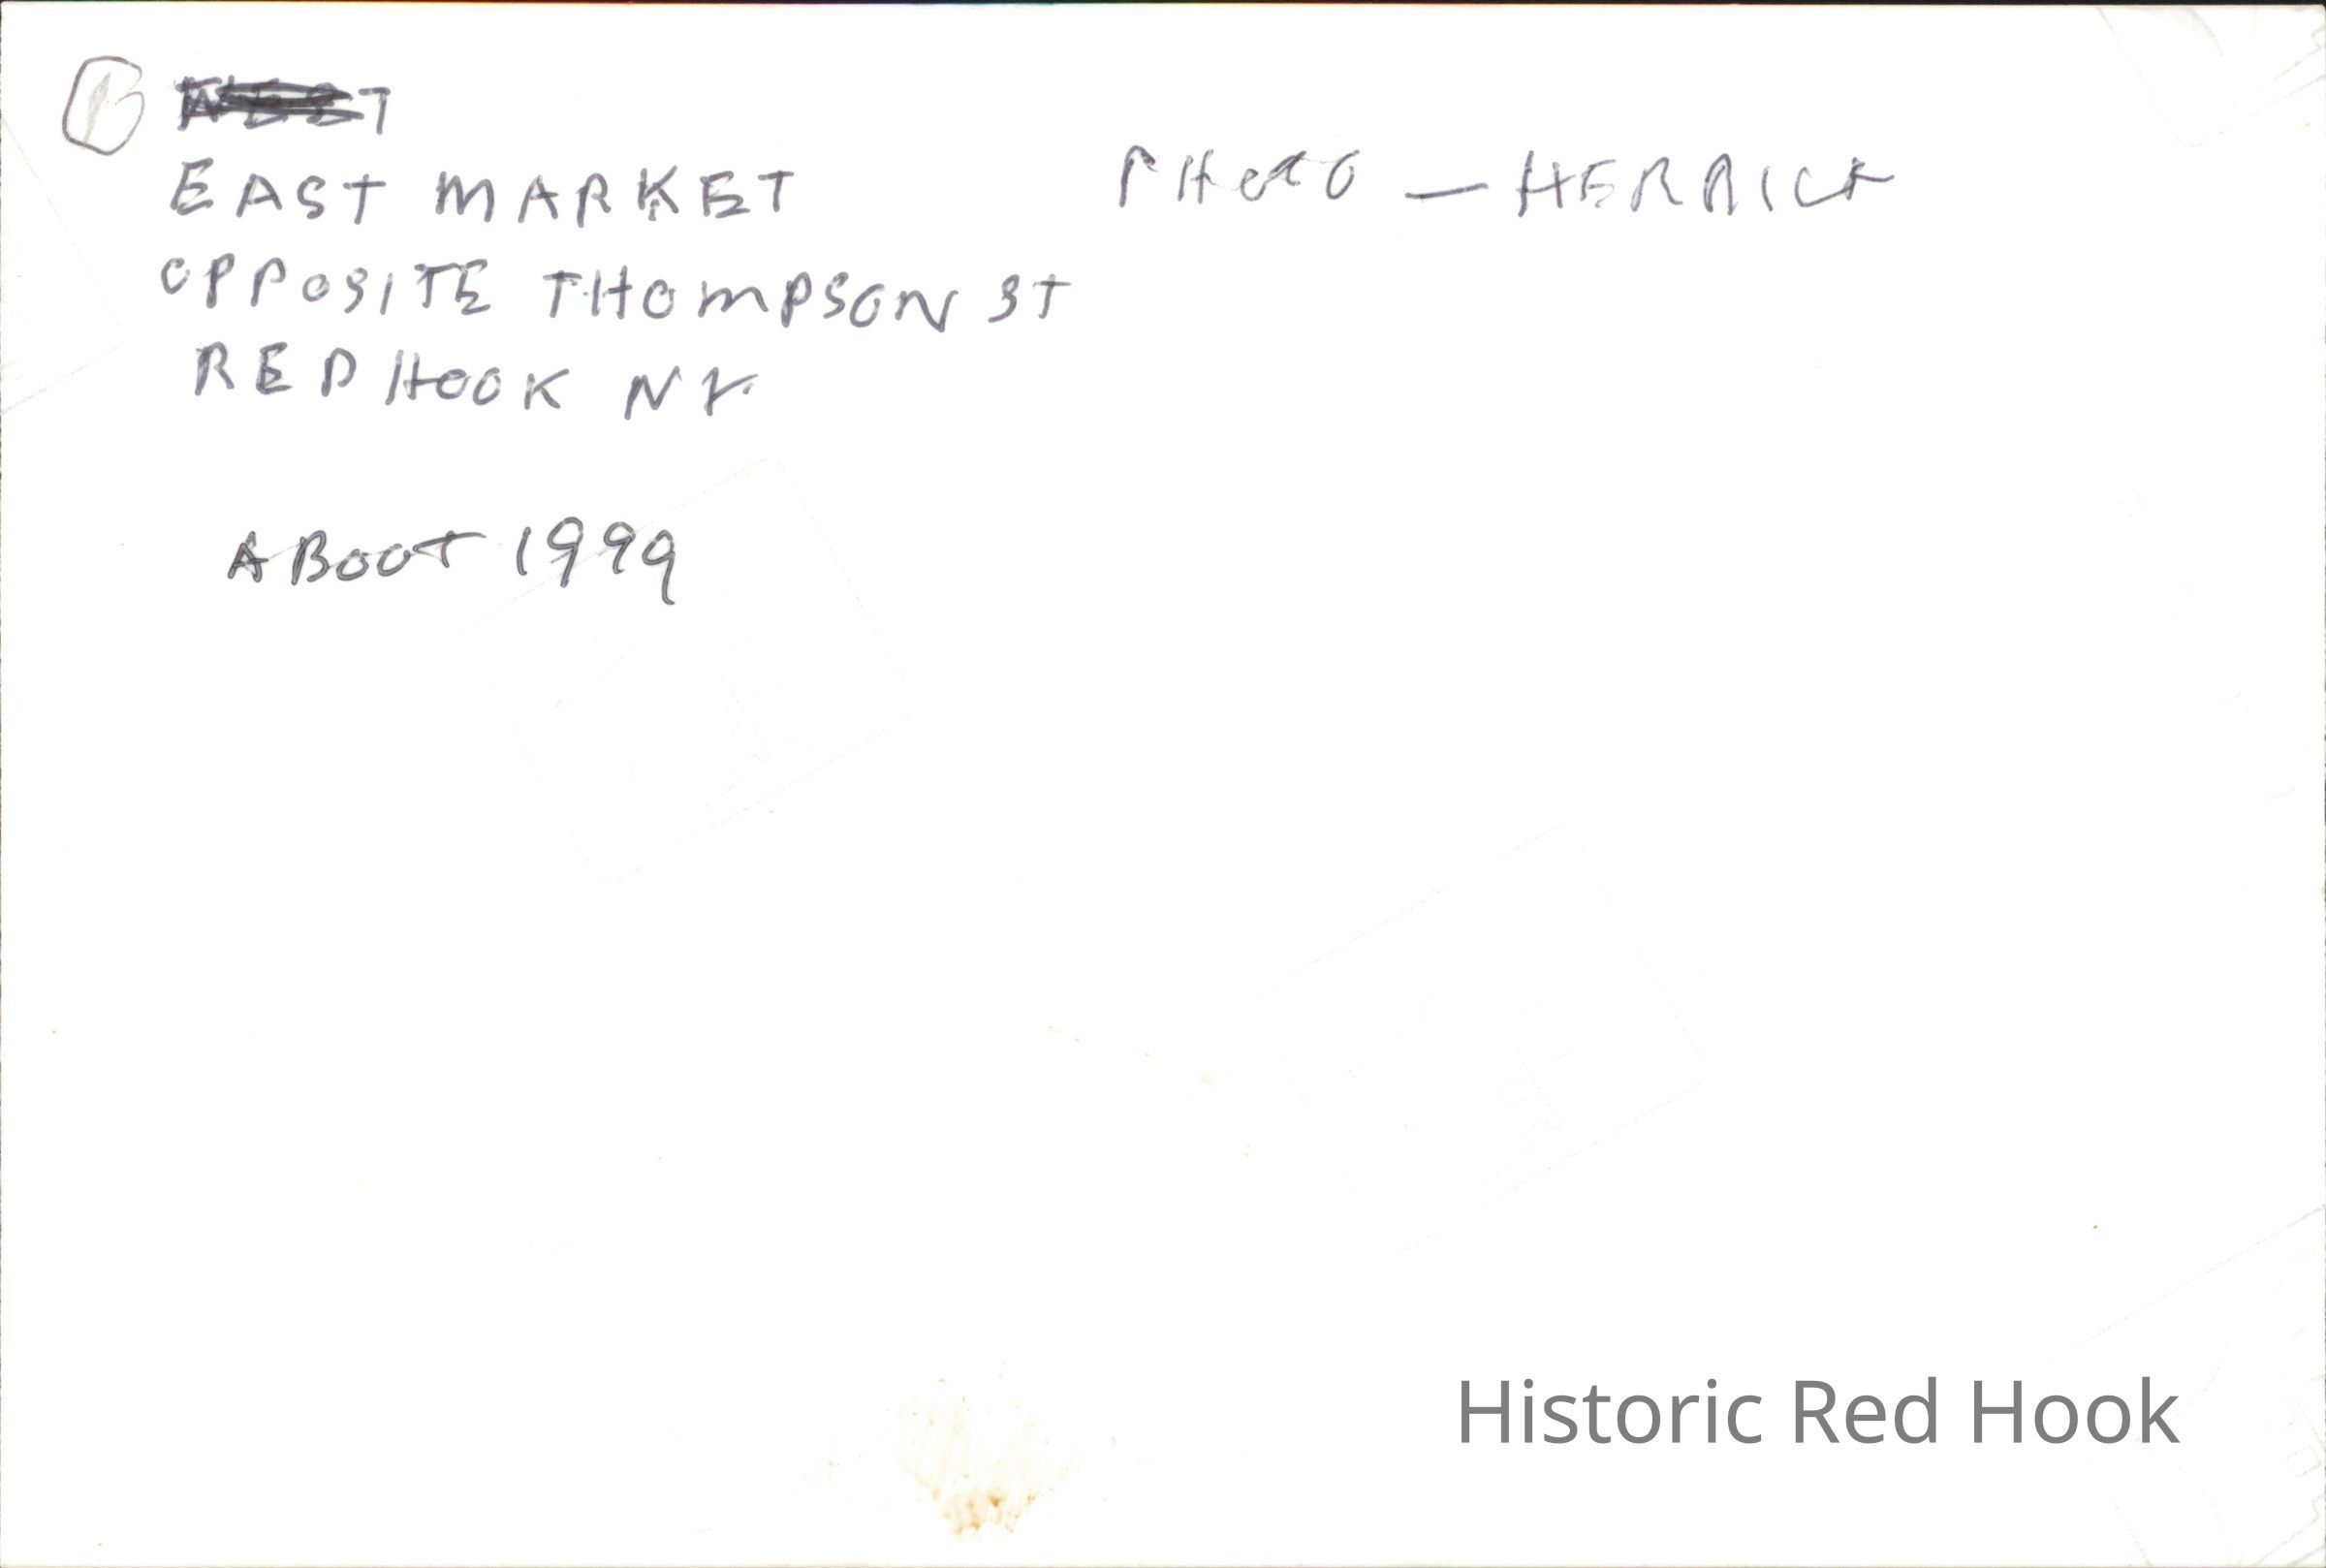 EAST MARKET
PHOTO — HERRICK
OPPOSITE THOMPSON ST
RED HOOK NY
ABOUT 1999
Historic Red Hook